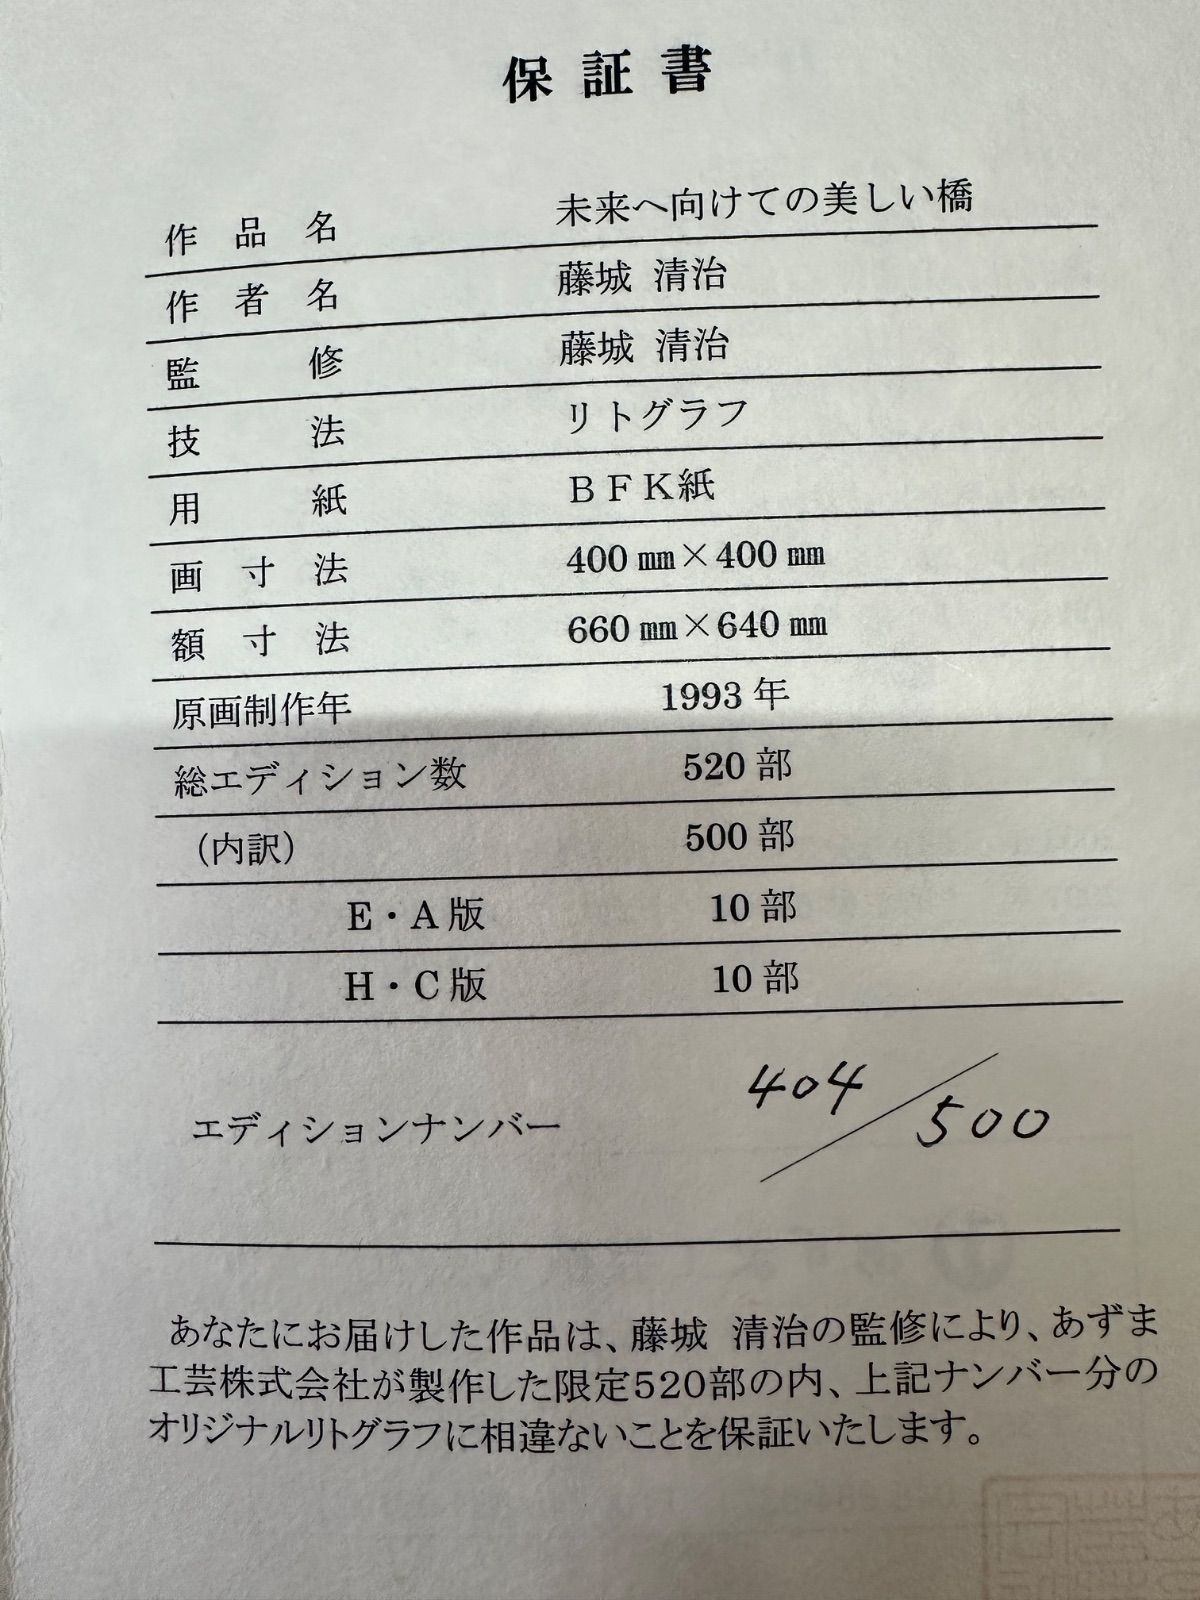 保証書
作品名 未来へ向けての美しい橋
作者名 藤城 清治
監修 藤城 清治
技法 リトグラフ
用紙 BFK紙
画寸法 400㎜×400㎜
額寸法 660㎜×640㎜
原画制作年 1993年
総エディション数 520部
(内訳) 500部
E・A版 10部
H・C版 10部
エディションナンバー 404/500
あなたにお届けした作品は、藤城 清治の監修により、あずま
工芸株式会社が製作した限定520部の内、上記ナンバー分の
オリジナルリトグラフに相違ないことを保証いたします。